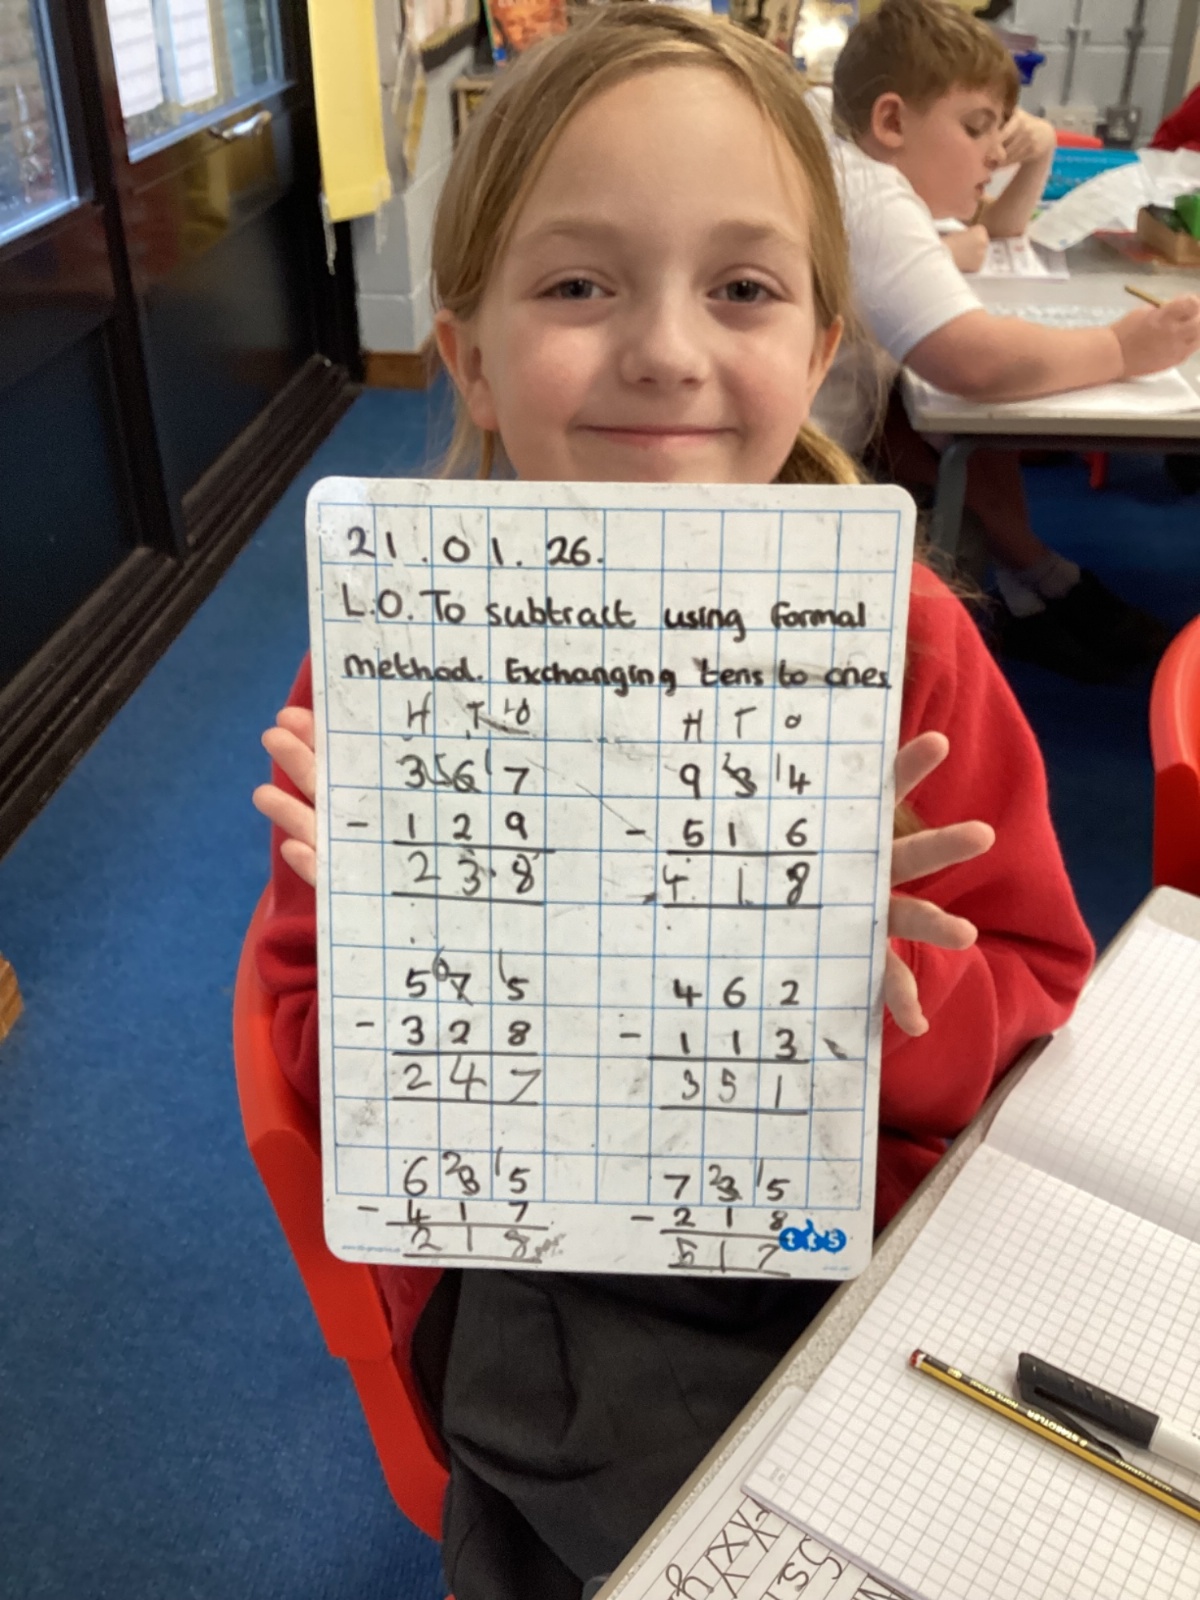 21.01.26.
L.O. To subtract using formal
method. Exchanging tens to ones
H T O H T O
3 5 6 1 7 9 2 3 1 4
- 1 2 9 - 5 1 6
2 3 8 4 1 8
5 6 7 1 5 4 6 2
- 3 2 8 - 1 1 3
2 4 7 3 5 1
6 2 3 1 5 7 2 3 1 5
- 4 1 7 - 2 1 8
2 1 8 5 1 7
tts
STAEDTLER